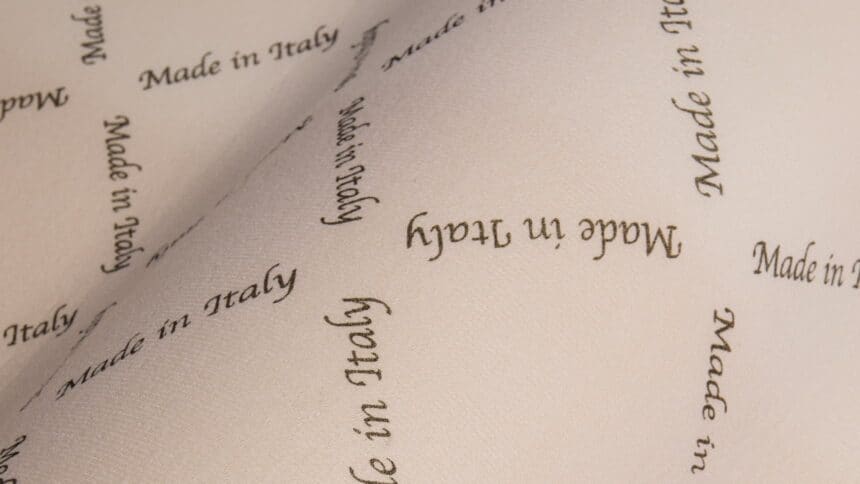 Made
Made in Italy
Made in
Made in Ita
Made
Made in Italy
Made in Italy
Made in Italy
Made in
Made in Italy
Italy
Made in Italy
Made in
in Italy